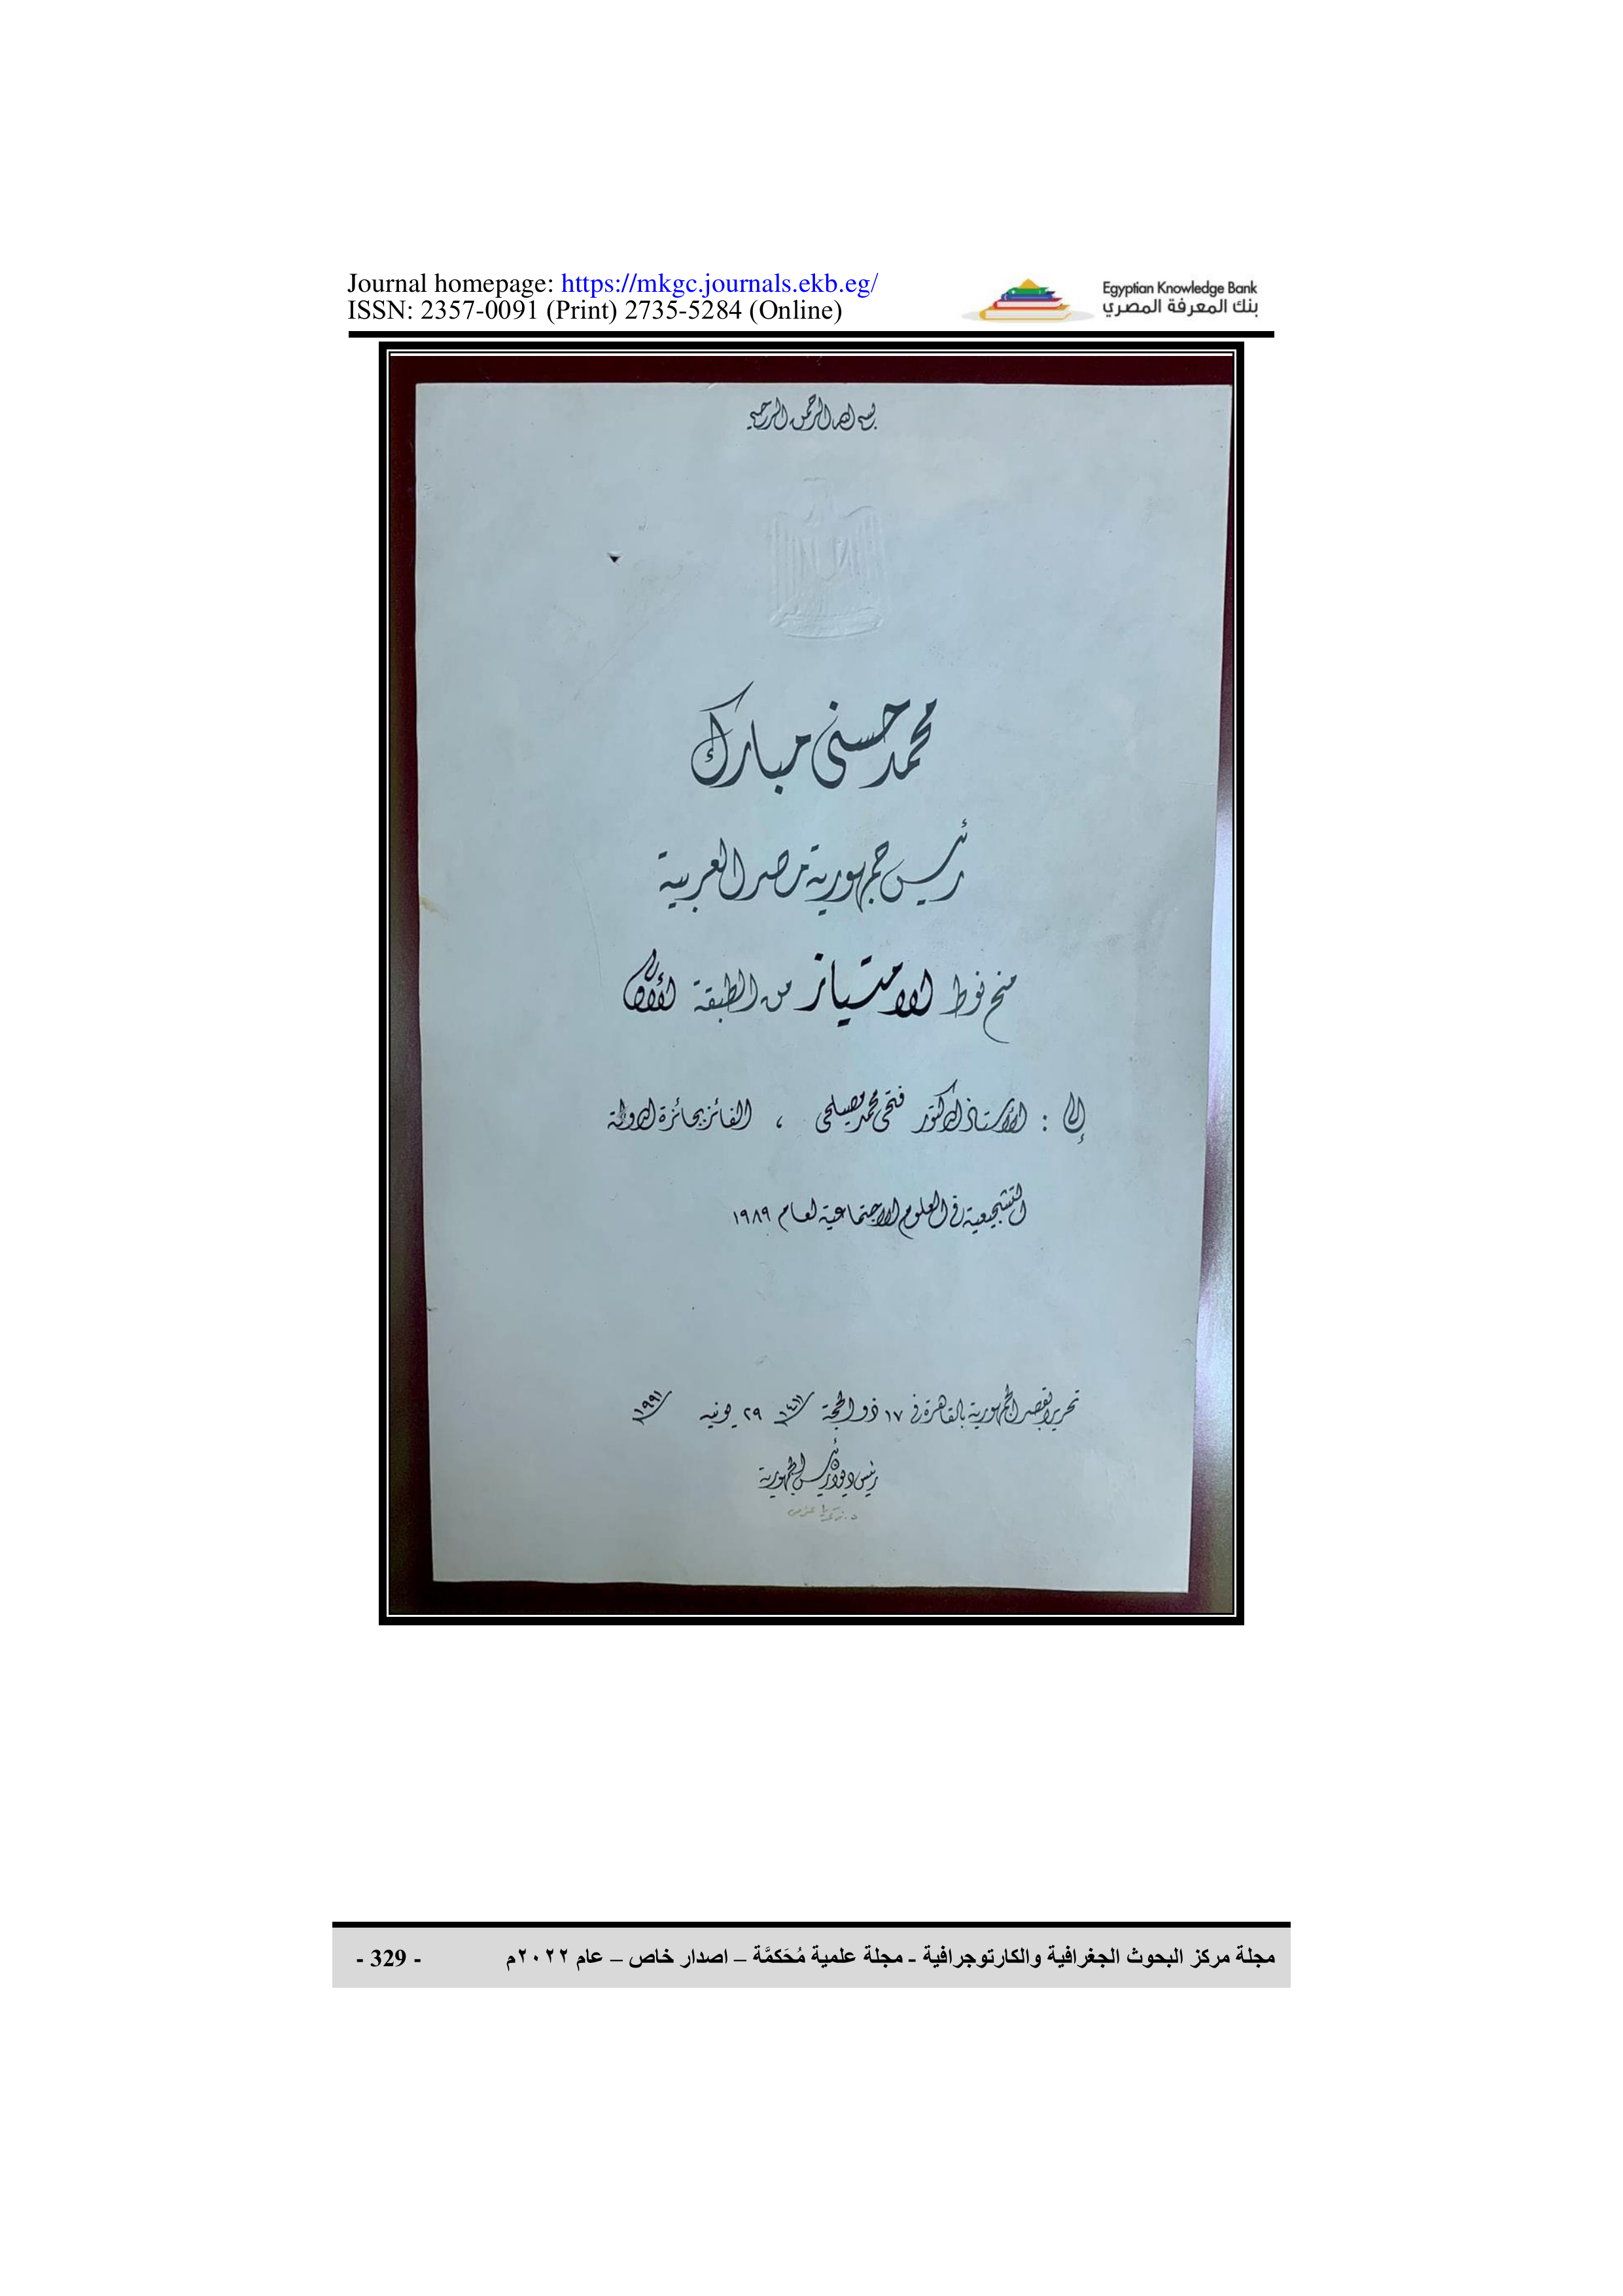 Journal homepage: https://mkgc.journals.ekb.eg/
ISSN: 2357-0091 (Print) 2735-5284 (Online)
Egyptian Knowledge Bank
بنك المعرفة المصري
بسم الله الرحمن الرحيم
محمد حسنى مبارك
رئيس جمهورية مصر العربية
منح نوط الامتياز من الطبقة الأولى
إلى : الأستاذ الدكتور فتحى محمد مصيلحى ، الفائز بجائزة الدولة
التشجيعية فى العلوم الاجتماعية لعام ١٩٨٩
تحريرا بقصر الجمهورية بالقاهرة فى ١٧ ذو الحجة ١٤١١ ٢٩ يونيه ١٩٩١
رئيس ديوان رئيس الجمهورية
مجلة مركز البحوث الجغرافية والكارتوجرافية - مجلة علمية مُحَكمَّة – اصدار خاص – عام ٢٠٢٢م - 329 -